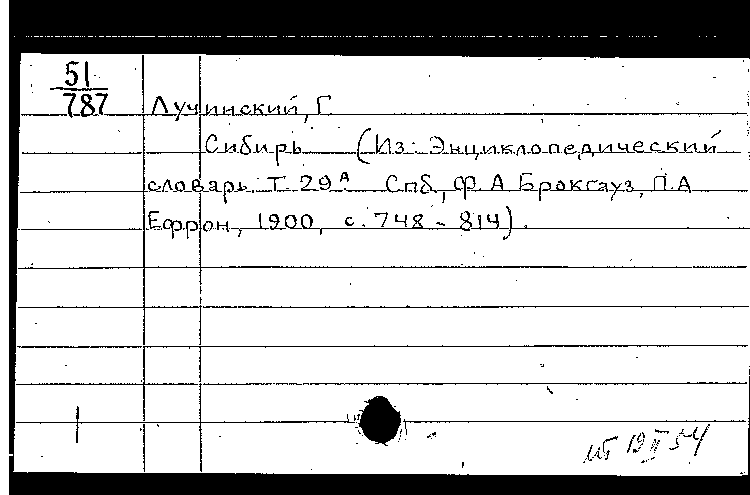 51
787
Лучинский, Г.
Сибирь (Из: Энциклопедический
словарь. Т. 29А. Спб, Ф. А Брокгауз, П. А
Ефрон, 1900, с. 748 - 814).
19 II 54